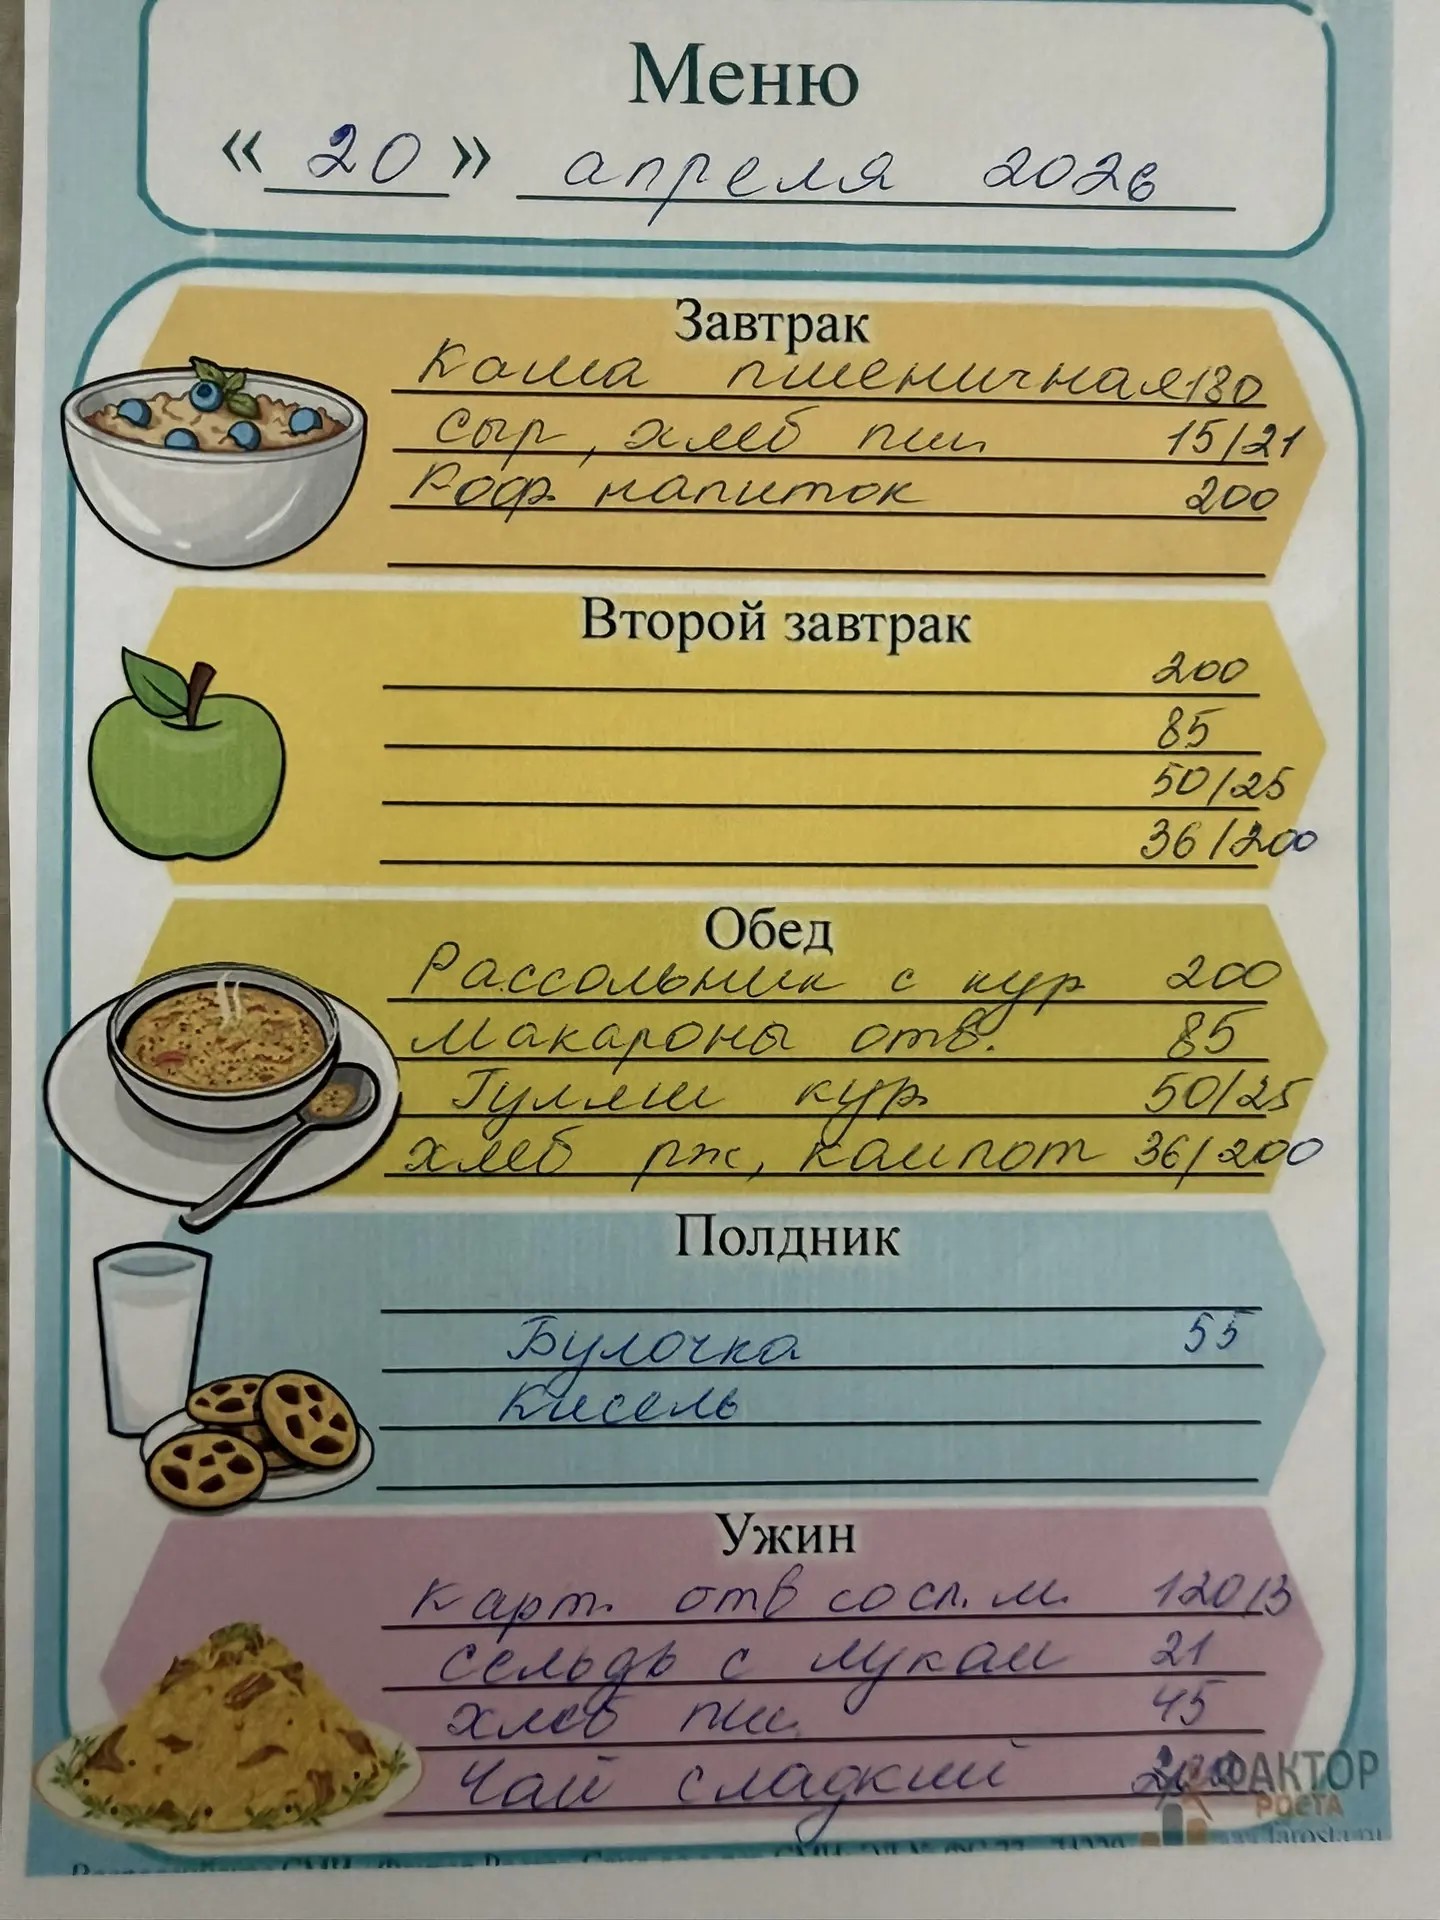 Меню
« 20 » апреля 2026
Завтрак
Каша пшеничная 180
сыр, хлеб пш. 15/21
Коф. напиток 200
Второй завтрак
200
85
50/25
36/200
Обед
Рассольник с кур 200
Макароны отв. 85
Гуляш кур. 50/25
хлеб рж, компот 36/200
Полдник
Булочка 55
Кисель
Ужин
карт. отв со сл. м. 120/3
сельдь с луком 21
хлеб пш. 45
Чай сладкий
ФАКТОР
РОСТА